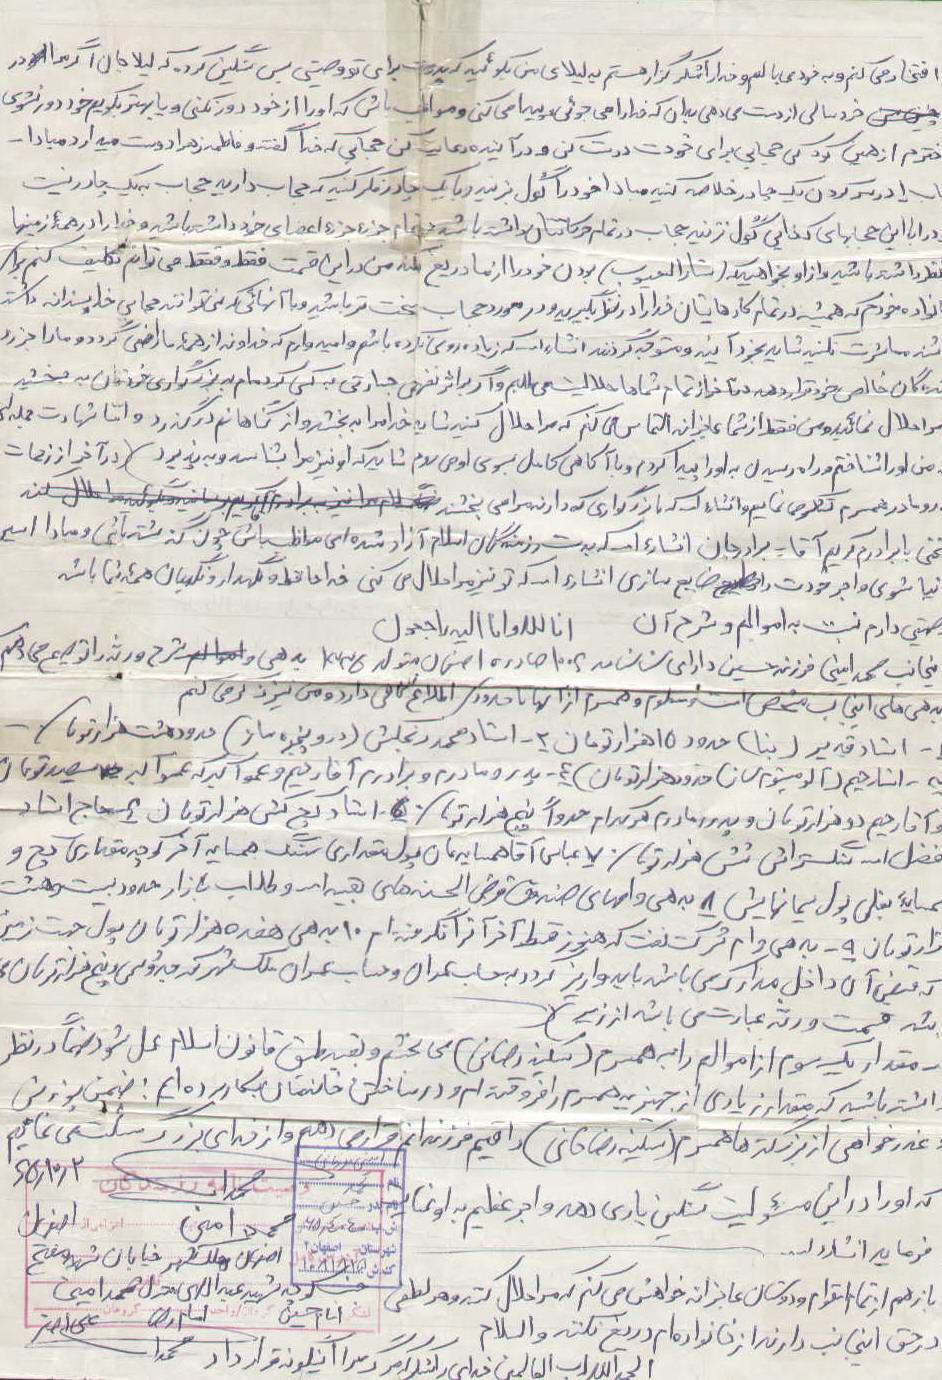 افتخار می کنم و به خود می بالم و خدا را شکر گزار هستم به لیلای من بگوئید که پدرت برای تو وصیتی بس سنگین کرده که لیلا جان اگر مرا در
خردسالی از دست می دهی بدان که خدا را می جوئی و پیدا می کنی و مواظب باش که او را از خود دور نکنی و یا بهتر بگویم خود دور نشوی
دخترم از همین کودکی حجابی برای خودت درست کن و در آینده رعایت کن حجابی که خدا گفته و فاطمه زهرا دوست میدارد مبادا -
را در سر کردن یک چادر خلاصه کنید مبادا خود را گول بزنید و با یک چادر فکر کنید که حجاب دارید حجاب به یک چادر نیست
این حجابهای کذایی گول نزنید حجاب در تمام حرکاتتان داشته باشید در تمام جزء جزء اعضای خود داشته باشید و خدا را در همه زمینها
نظر داشته باشید و از او بخواهید که (ستار العیوب) بودن خود را از ما دریغ نکند من در این قسمت فقط و فقط می توانم تکلیف کنم برای
خانواده خودم که همیشه در تمام کارهایتان خدا را در نظر بگیرید و در مورد حجاب سخت تر باشید و با آنهائی که نمی توانند حجابی خداپسندانه داشته
باشند معاشرت نکنید شاید بخود آیند و متوجه گردند انشاءالله که زیاده روی نکرده باشم و امیدوارم که خداوند از همه ما راضی گردد و ما را جزء
بندگان خالص خود قرار دهد در آخر از تمام شماها حلالیت می طلبم و اگر بر اثر نفهمی جسارتی به کسی کرده ام به بزرگواری خودتان به بخشید
مرا حلال نمائید و من فقط از شما عاجزانه التماس می کنم که مرا حلال کنید شاید خدا مرا به بخشد و از گناهانم در گذرد
من او را شناختم و راه رسیدن به او را پیدا کردم و با آگاهی کامل بسوی او می روم شاید که او نیز مرا بشناسد و به پذیرد (در آخر از زحمات
پدر و مادر همسرم تشکر می نمایم و انشاءالله که با بزرگواری که دارند مرا می بخشند
سخنی با برادرم کریم آقا - برادر جان انشاءالله که بدست رزمندگان اسلام آزاد شده ای مواظب باش چون گذشته باشی و مبادا اسیر
دنیا شوی و اجر خودت را ضایع سازی انشاءالله که تو نیز مرا حلال می کنی خدا حافظ و نگهدار و نگهبان همه شما باشد
وصیتی دارم نسبت به اموالم و شرح آن انا لله و انا الیه راجعون
اینجانب محمد امینی فرزند حسین دارای شناسنامه ۱۰۰۶ صادره اصفهان متولد ۱۳۳۶ بدهی و اموالم شرح ورثه را توضیح می دهم
بدهی های اینجانب مشخص است و معلوم و همسرم از آنها تا حدودی اطلاع کافی دارد و من نیز ذکر می کنم
۱- استاد قدیر (بنا) حدود ۱۵ هزار تومان ۲- استاد محمد رنجکش (در و پنجره ساز) حدود هشت هزار تومان -
۳- استاد رحیم (آلومینیوم ساز) حدود هزار تومان ۴- پدر و مادرم و برادرم آقا رحیم و عمو اکبر که عمو اکبر سیصد تومان
و آقا رحیم دو هزار تومان و پدر و مادرم هر کدام حدوداً پنج هزار تومان ۵- استاد گچ کش هزار تومان ۶- حاج استاد
فضل اله سنگتراش شش هزار تومان ۷- عباس آقا همسایه مان پول مقداری سنگ همسایه آخر کوچه مقداری گچ و
همسایه بغلی پول سیمانهایش ۸- بدهی وامهای صندوق قرض الحسنه های و طالب بازار حدود بیست و هشت
هزار تومان ۹- بدهی وام شرکت نفت که هنوز قسط آخر آنرا نگرفته ام ۱۰- بدهی هفده هزار تومان پول جهت زمین
که قبض آن داخل مدارکم می باشد باید واریز گردد به حساب عمران و حساب عمران ملکشهر که حدود سی و پنج هزار تومان می
باشد قسمت ورثه عبارت می باشد از زیر:
- مقدار یک سوم از اموالم را به همسرم (سکینه رضائی) می بخشم و بقیه طبق قانون اسلام عمل شود ضمناً در نظر
داشته باشید که مقدار زیادی از جهیزیه همسرم را فروخته ام و در ساختن خانه مان بکار برده ایم: ضمن پوزش
و عذرخواهی از بزرگترها همسرم (سکینه رضائی) را قیم فرزندانم قرار می دهم و از خدای بزرگ مسئلت می نمایم
که او را در این مسئولیت سنگین یاری دهد و اجر عظیم به او عنایت
فرماید انشاءاله
محمد امینی
۶۵/۱۰/۲
اصفهان
اصفهان ملکشهر خیابان شهید مفتح
کوچه شهید عبدالهی منزل محمد امینی
باز هم از تمام اقوام و دوستان عاجزانه خواهش می کنم که مرا حلال کنند و هر لطفی
در حق اینجانب دارند از خانواده ام دریغ نکنند والسلام
الحمدالله رب العالمین خدای را شکر که مرگ مرا اینگونه قرار داد
امام حسین
امام رضا
علی اصغر
نام
محمد
نام پدر
حسین
شهرستان: اصفهان ۲